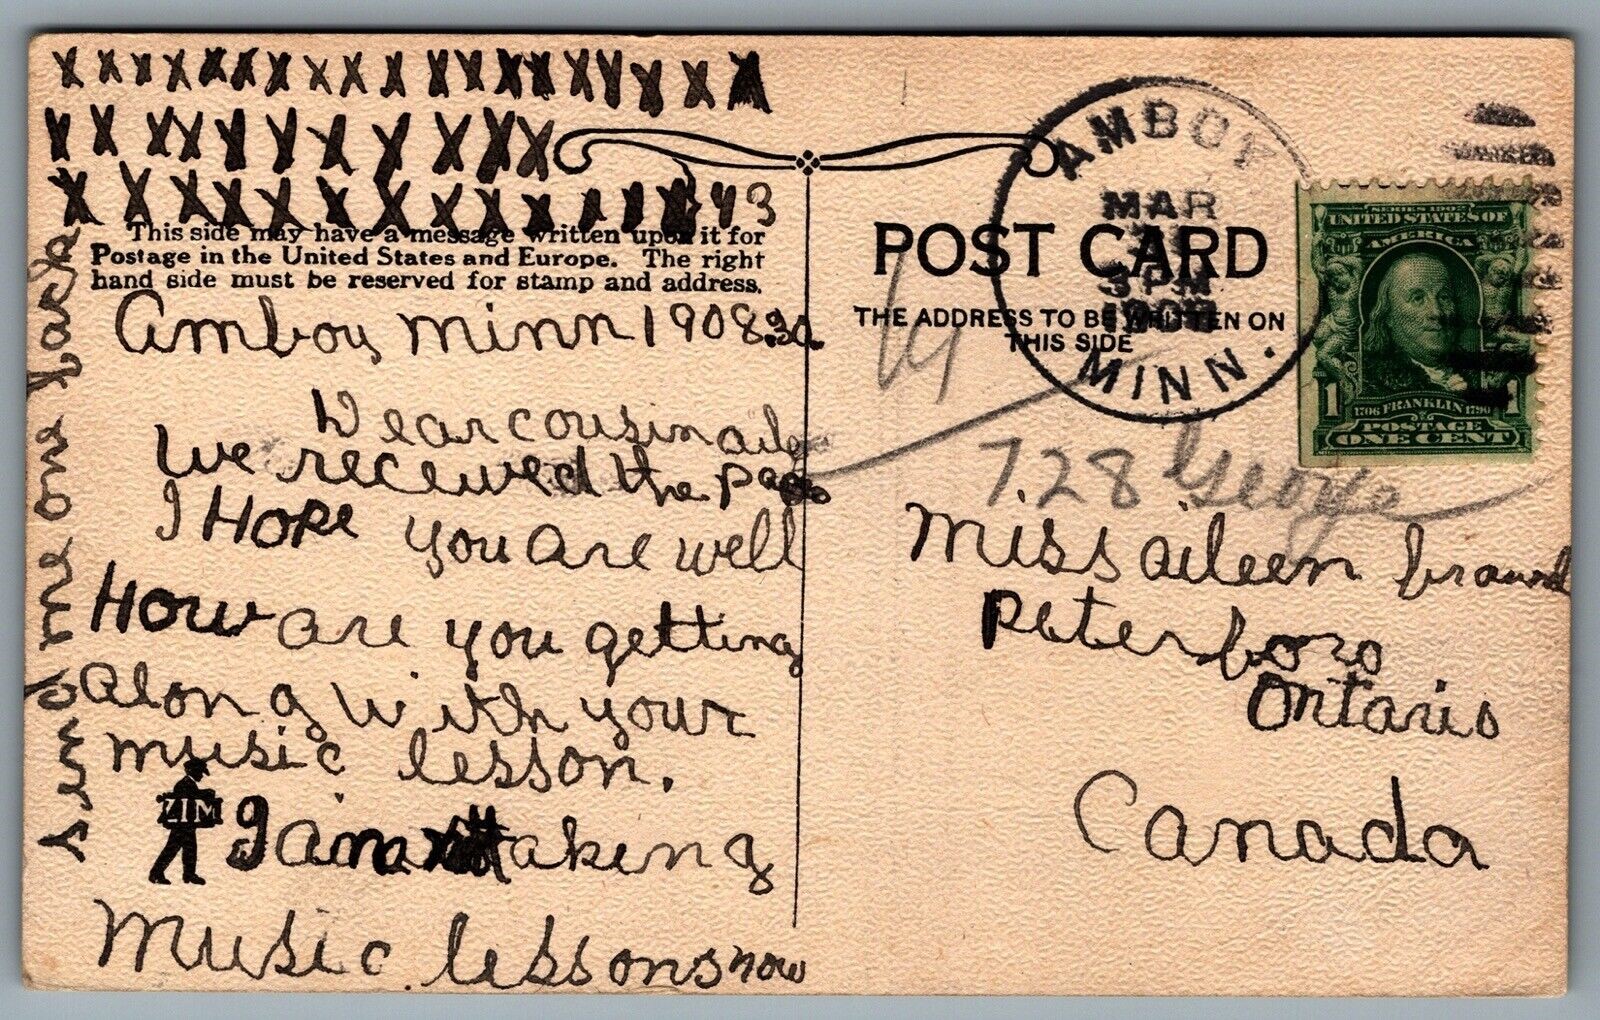 x x x x x x x x x x x x x x x x x x x x
x x x x x x x x x x x x
x x x x x x x x x x x x x x 43
This side may have a message written upon it for
Postage in the United States and Europe. The right
hand side must be reserved for stamp and address.
amboy minn 1908
Dear cousin
we received the
I HOPE you are well
How are you getting
along with your
music lesson.
ZIM
I am taking
music lessons now
send me one back
POST CARD
THE ADDRESS TO BE WRITTEN ON
THIS SIDE
AMBOY
MAR
3PM
MINN.
SERIES 1902
UNITED STATES OF
AMERICA
1 1
1706 FRANKLIN 1790
POSTAGE
ONE CENT
728 George
miss aileen
Peterboro
Ontario
Canada